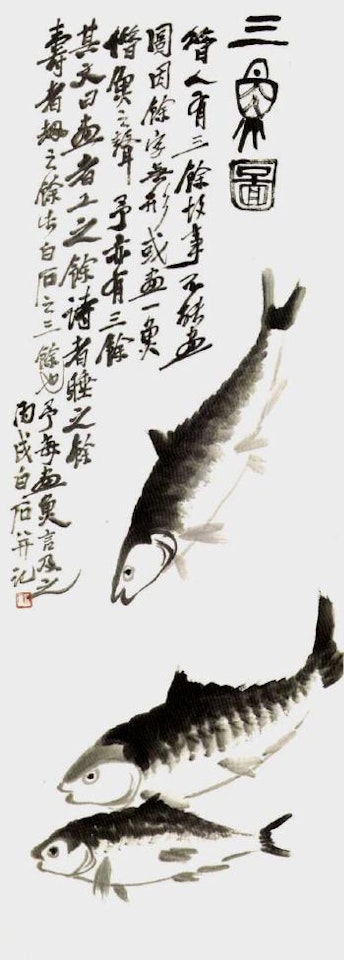 三魚圖
昔人有三餘故事不能畫
圖因餘字無形或畫一魚
借魚之聲 予亦有三餘
其文曰畫者工之餘詩者睡之餘
壽者劫之餘此白石之三餘也
予每畫魚言及之
丙戌白石并記